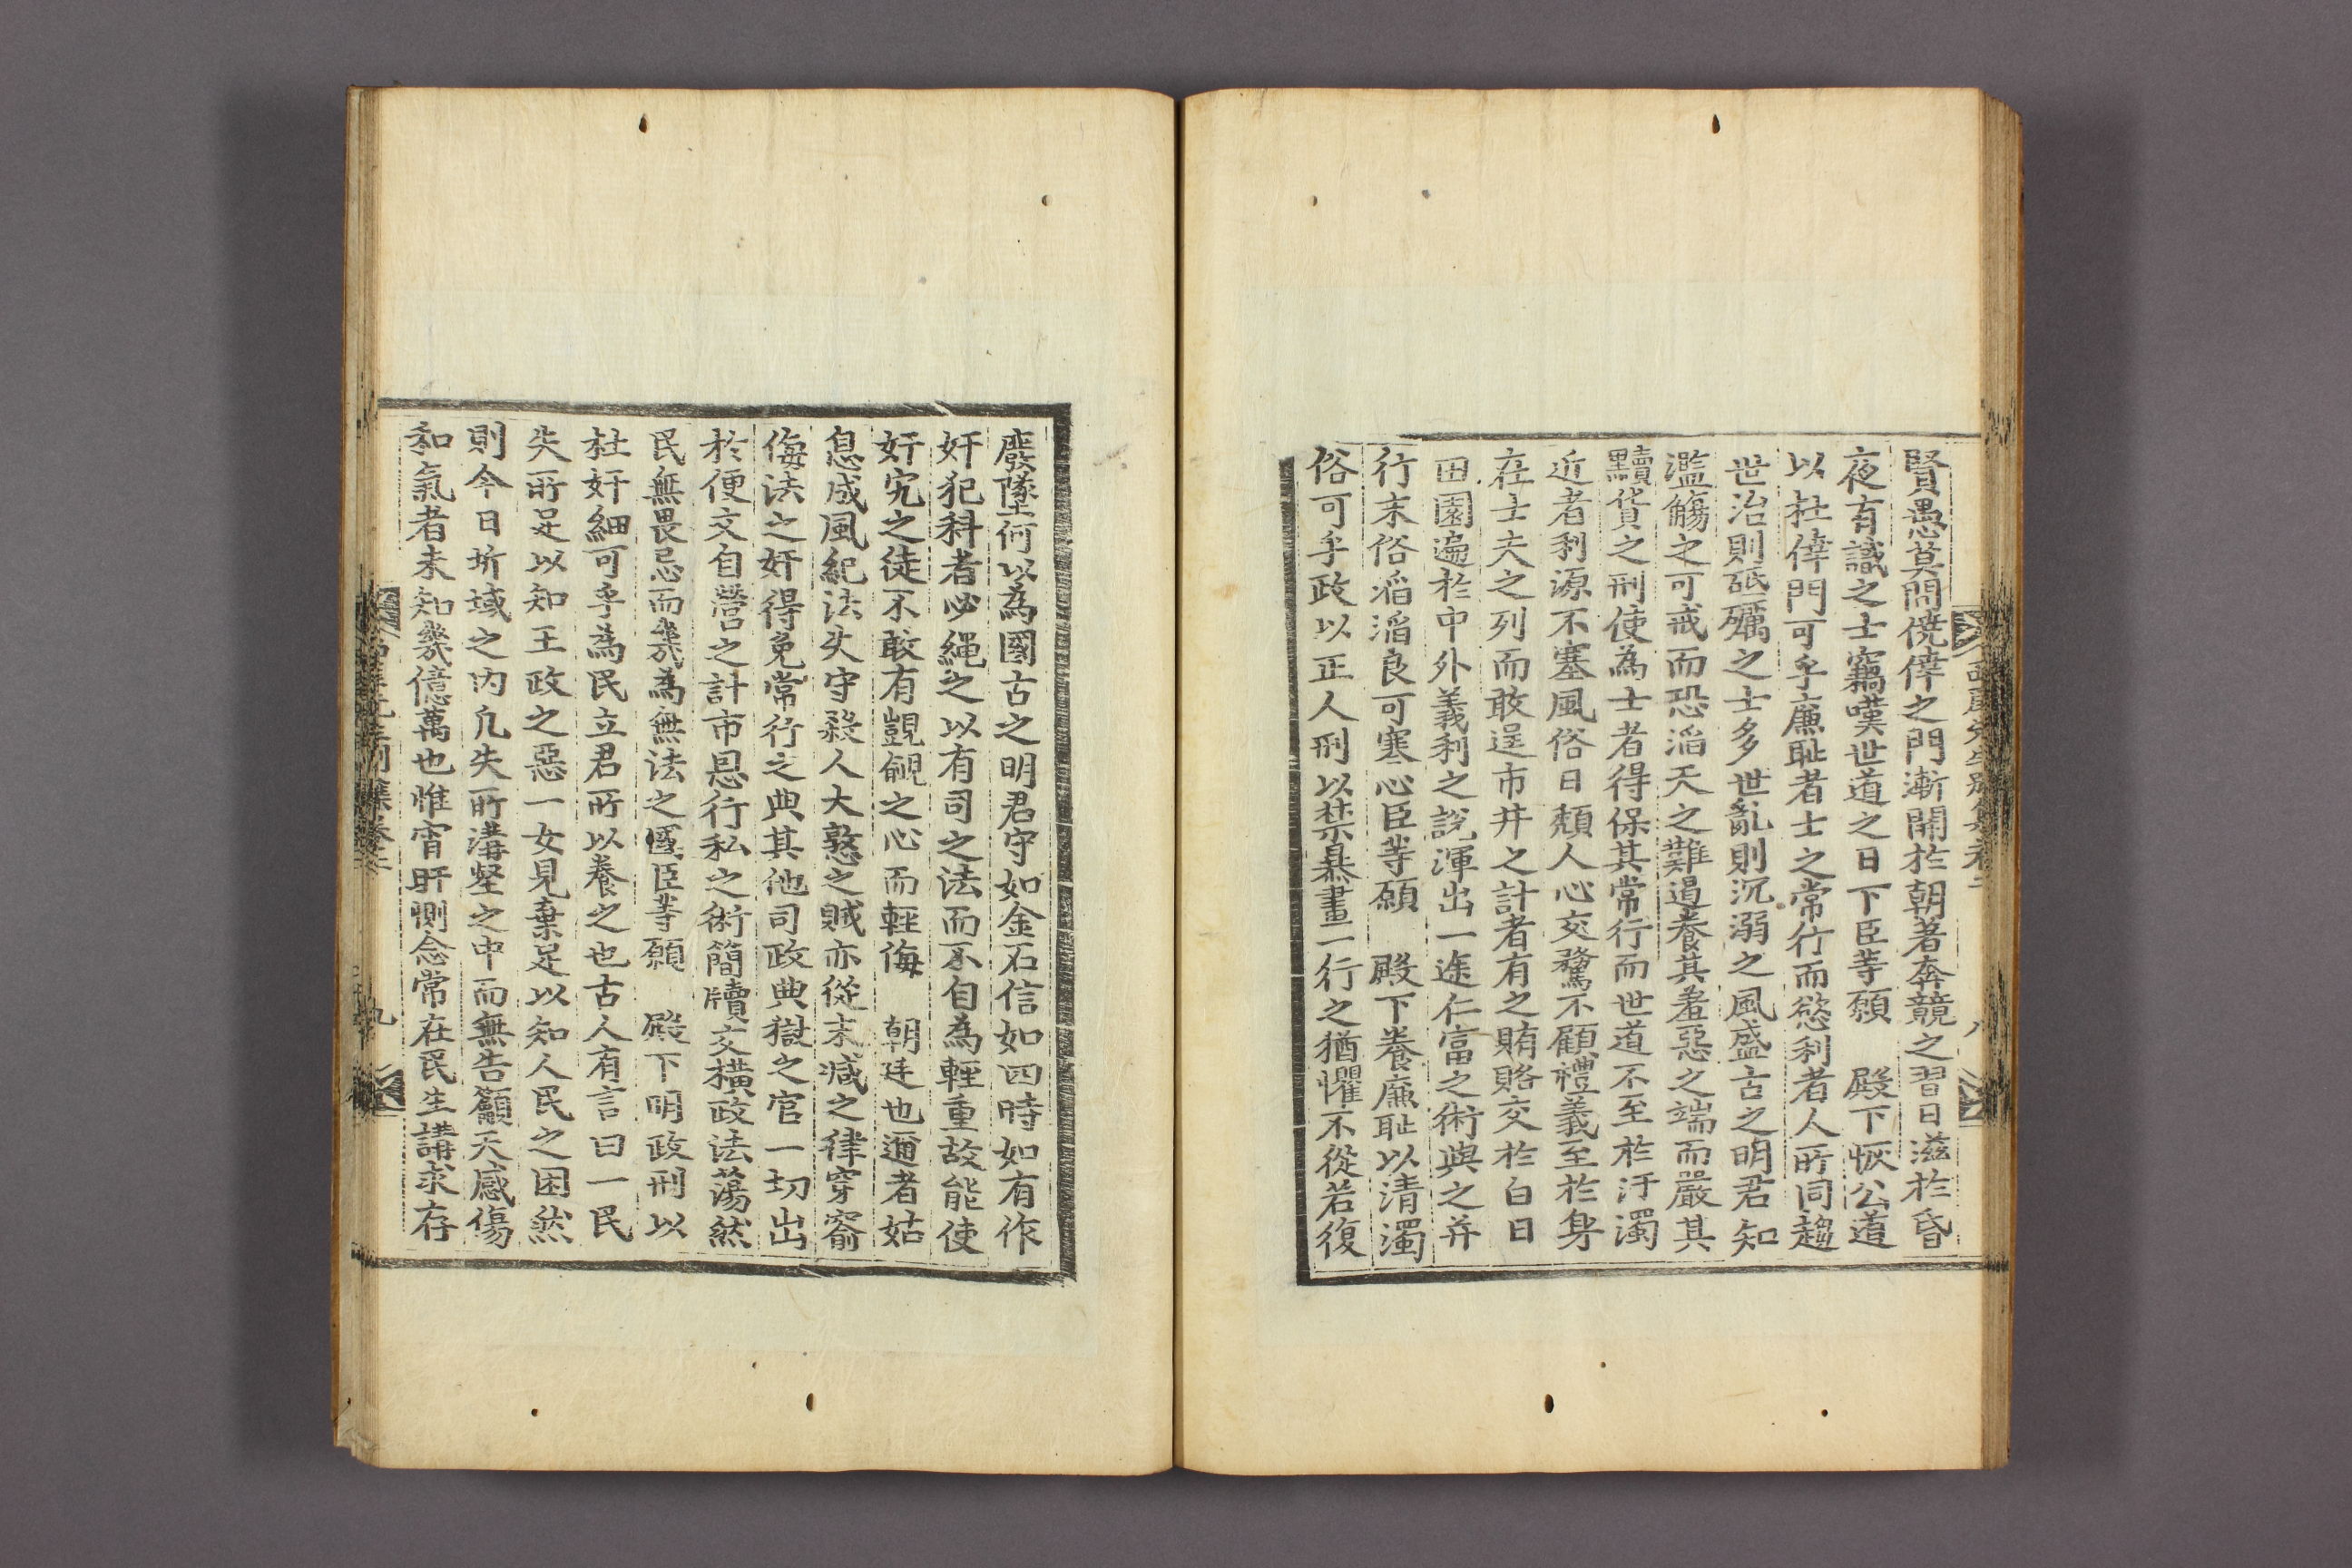 賢愚莫問僥倖之門漸開於朝著奔競之習日滋於昏
夜有識之士竊嘆世道之日下臣等願 殿下恢公道
以杜倖門可乎廉恥者士之常行而慾利者人所同趨
世治則砥礪之士多世亂則沉溺之風盛古之明君知
濫觴之可戒而恐滔天之難遏養其羞惡之端而嚴其
黷貨之刑使為士者得保其常行而世道不至於汙濁
近者利源不塞風俗日頹人心交騖不顧禮義至於身
在士夫之列而敢逞市井之計者有之賄賂交於白日
田園遍於中外義利之說渾出一途仁富之術與之并
行末俗滔滔良可寒心臣等願 殿下養廉恥以清濁
俗可乎政以正人刑以禁暴畫一行之猶懼不從若復
廢墜何以為國古之明君守如金石信如四時如有作
奸犯科者必繩之以有司之法而不自為輕重故能使
奸宄之徒不敢有覬覦之心而輕侮 朝廷也邇者姑
息成風紀法失守殺人大憝之賊亦從末減之律穿窬
侮法之奸得免常行之典其他司政典獄之官一切出
於便文自營之計市恩行私之術簡牘交橫政法蕩然
民無畏忌而幾為無法之國臣等願 殿下明政刑以
杜奸細可乎為民立君所以養之也古人有言曰一民
失所足以知王政之惡一女見棄足以知人民之困然
則今日圻域之內凡失所溝壑之中而無告籲天感傷
和氣者未知幾億萬也惟宵旰惻念常在民生講求存
九